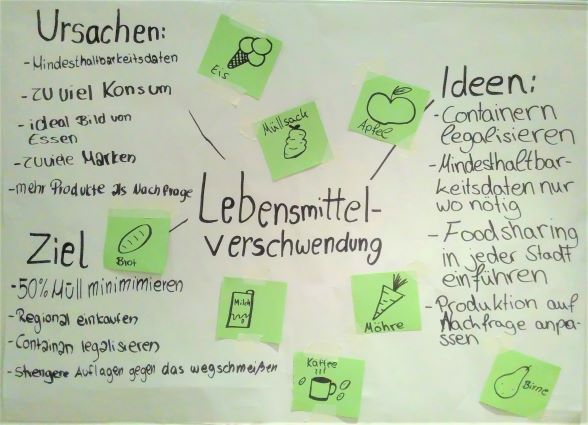 Ursachen:
- Mindesthaltbarkeitsdaten
- zu viel Konsum
- ideal Bild von
Essen
- zuviele Marken
- mehr Produkte als Nachfrage
Eis
Müllsack
Apfel
Ideen:
- Containern
legalisieren
- Mindesthaltbar-
keitsdaten nur
wo nötig
- Foodsharing
in jeder Stadt
einführen
- Produktion auf
Nachfrage anpa-
ssen
Lebensmittel-
verschwendung
Brot
Ziel
- 50% Müll minimimieren
- Regional einkaufen
- Containern legalisieren
- Strengere Auflagen gegen das wegschmeißen
Milch
Möhre
Kaffee
Birne